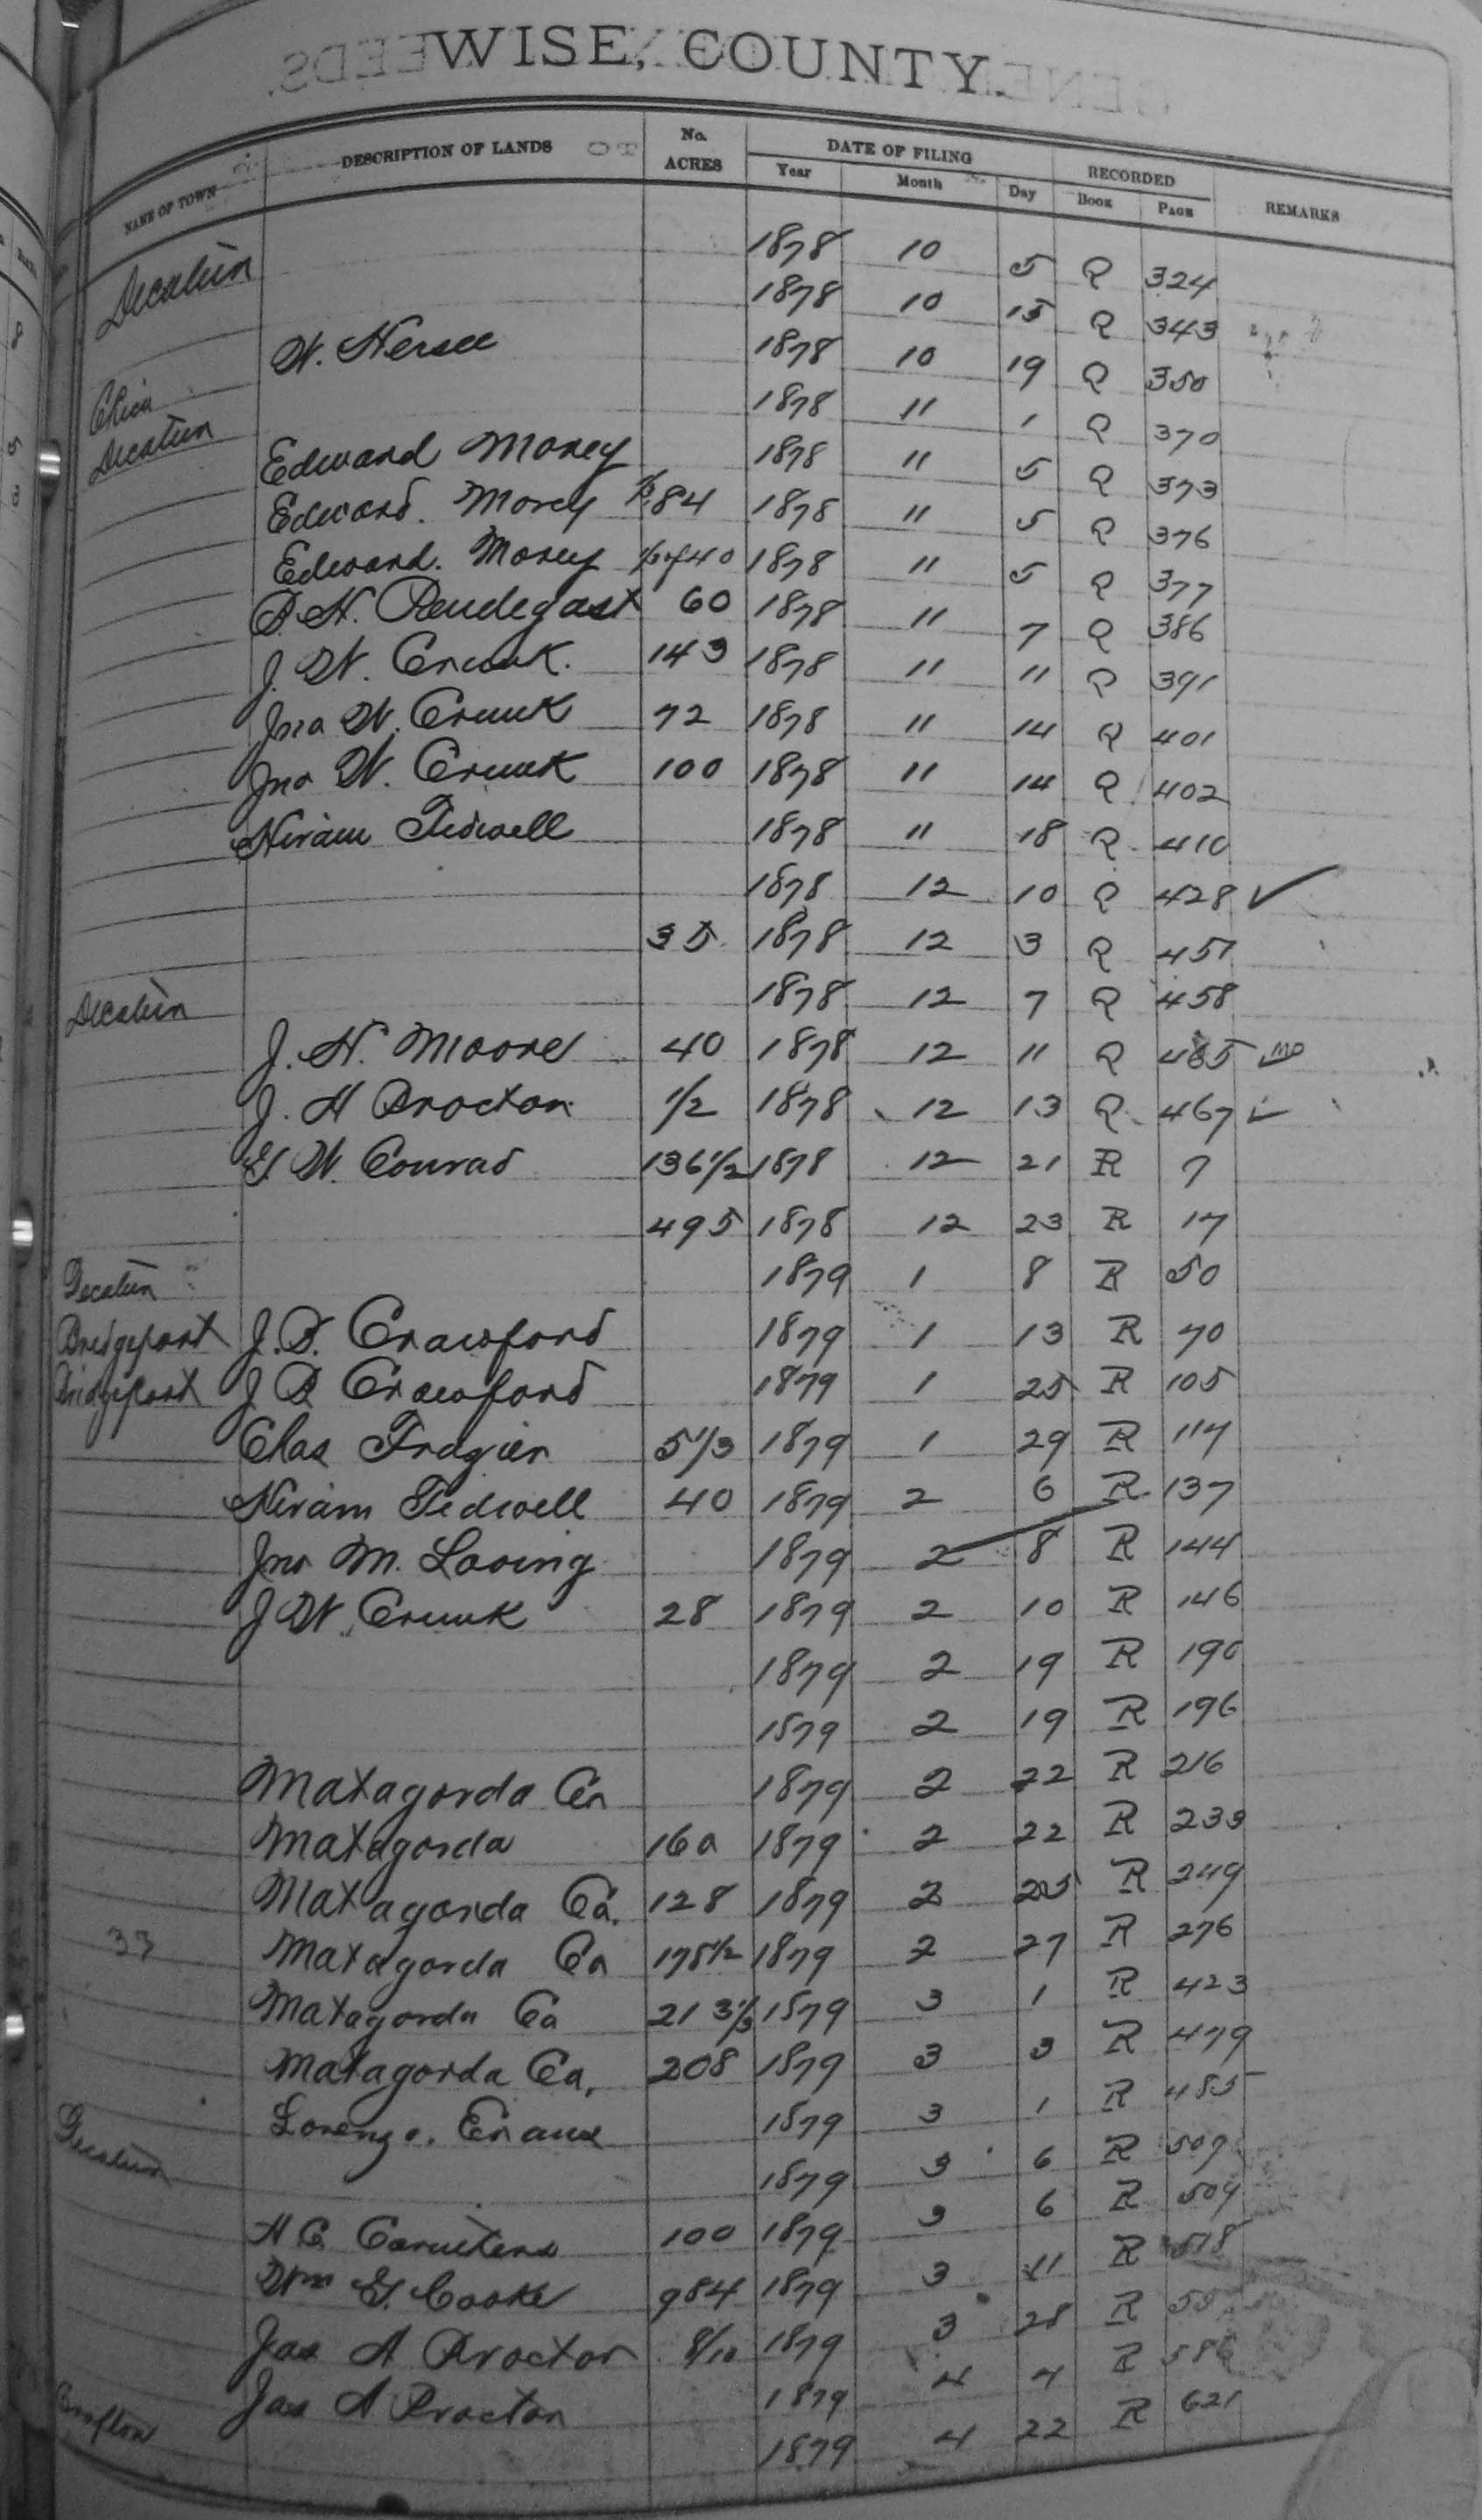 WISE, COUNTY.
NAME OF TOWN DESCRIPTION OF LANDS No. ACRES DATE OF FILING Year Month Day RECORDED Book Page REMARKS
Decatur 1878 10 5 Q 324
1878 10 15 Q 343
W. Hersee 1878 10 19 Q 350
Chico 1878 11 1 Q 370
Decatur 1878 11 5 Q 373
Edward Morey 1878 11 5 Q 376
Edward. Morey 84 1878 11 5 Q 377
Edward. Morey 40 1878 11 7 Q 386
P. H. Pendegast 60 1878 11 11 Q 391
J. W. Crunk. 143 1878 11 14 Q 401
Jno W. Crunk 72 1878 11 14 Q 402
Jno W. Crunk 100 1878 11 18 Q 410
Hiram Tidwell 1878 12 10 Q 428 ✓
35 1878 12 3 Q 457
Decatur 1878 12 7 Q 458
J. H. Moore 40 1878 12 11 Q 465
J. H Proctor 1/2 1878 12 13 Q 467 ✓
G. W. Conrad 136 1/2 1878 12 21 R 7
495 1878 12 23 R 17
Decatur 1879 1 8 R 50
Bridgeport J. P. Crawford 1879 1 13 R 70
Bridgeport J P Crawford 1879 1 25 R 105
Elas Frazier 5 1/3 1879 1 29 R 117
Hiram Tidwell 40 1879 2 6 R 137
Jno M. Loving 1879 2 8 R 144
J W. Crunk 28 1879 2 10 R 146
1879 2 19 R 190
1879 2 19 R 196
Matagorda Co 1879 2 22 R 216
Matagorda 160 1879 2 22 R 233
Matagorda Co. 128 1879 2 25 R 249
33 Matagorda Co 175 1/2 1879 2 27 R 276
Matagorda Co 213 1/3 1879 3 1 R 423
Matagorda Co, 208 1879 3 3 R 479
Lorenzo. 1879 3 1 R 485
Decatur 1879 3 6 R 509
100 1879 3 6 R 509
Wm G. Cooke 984 1879 3 11 R 518
Jas A Proctor 8/10 1879 3 28 R
Jas A Proctor 1879 4 7 R 586
1879 4 22 R 621